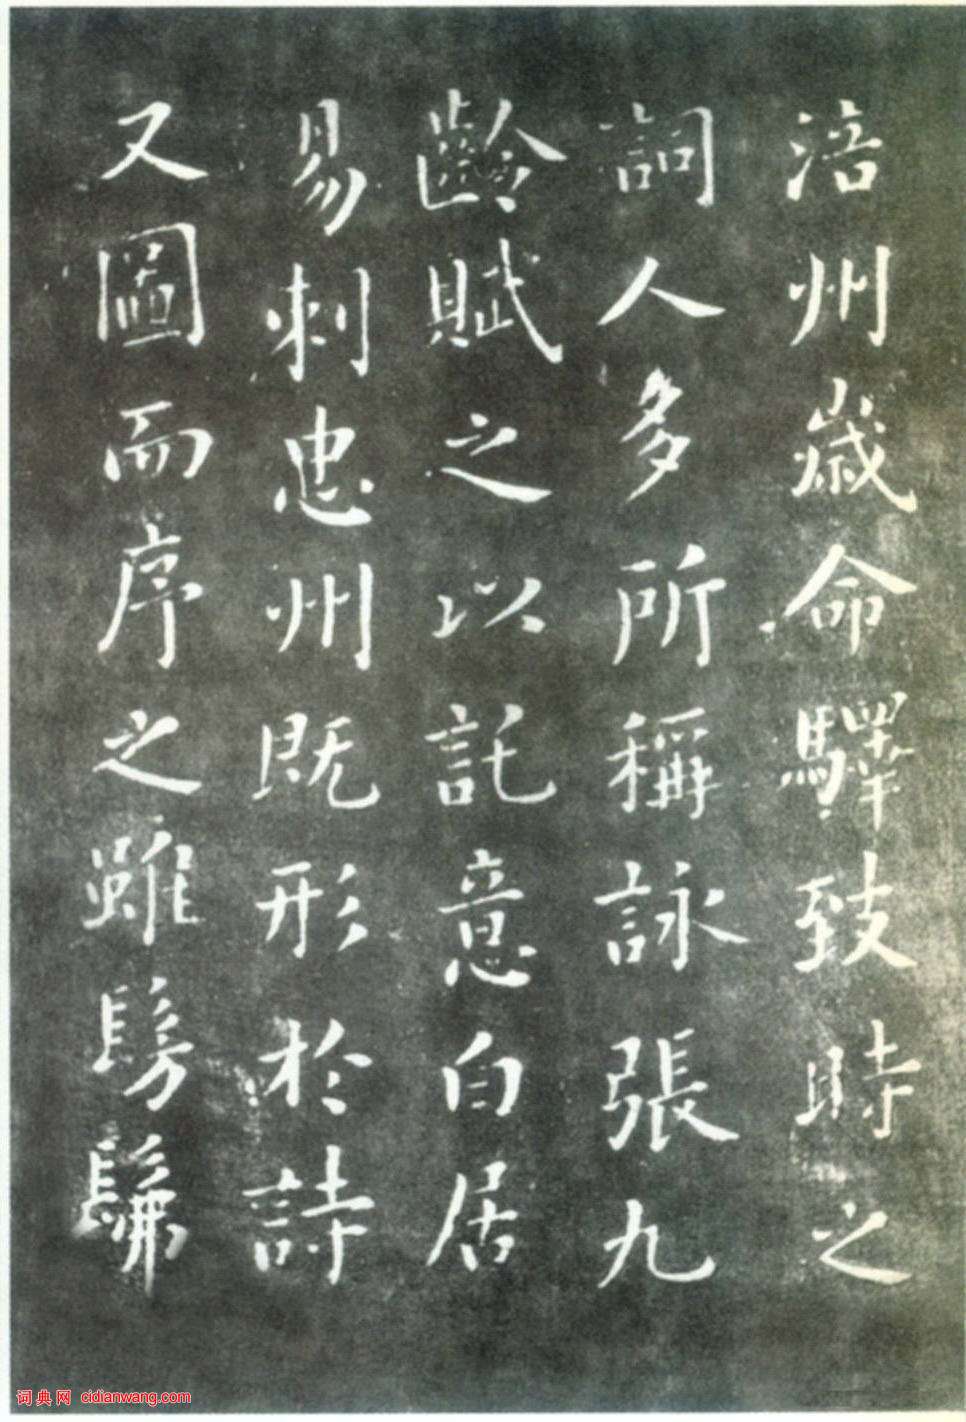 涪州歲命驛致時之
詞人多所稱詠張九
齡賦之以託意白居
易刺忠州既形於詩
又圖而序之雖髣髴
词典网 cidianwang.com